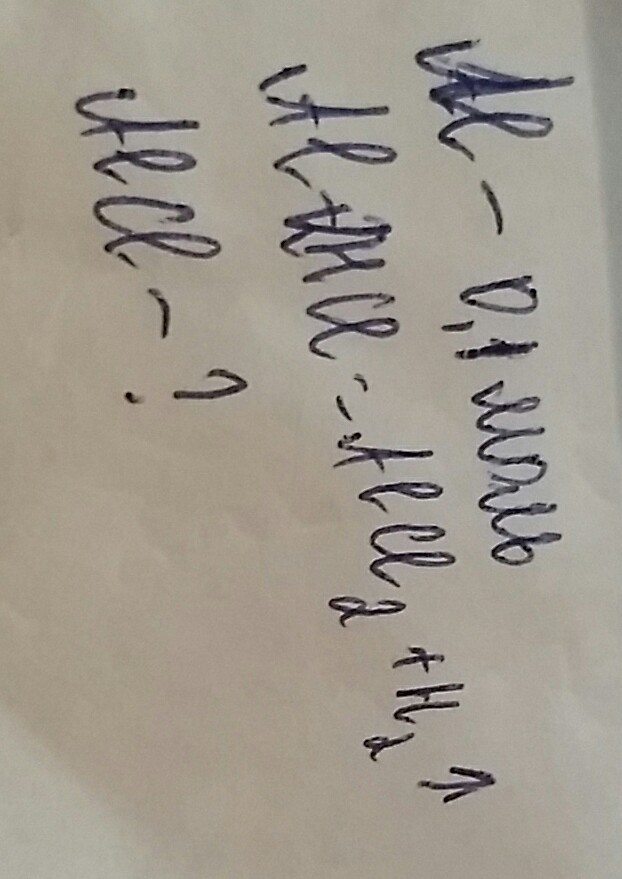 Al - 0,1 моль
Al + 2HCl = AlCl₂ + H₂ ↑
AlCl - ?